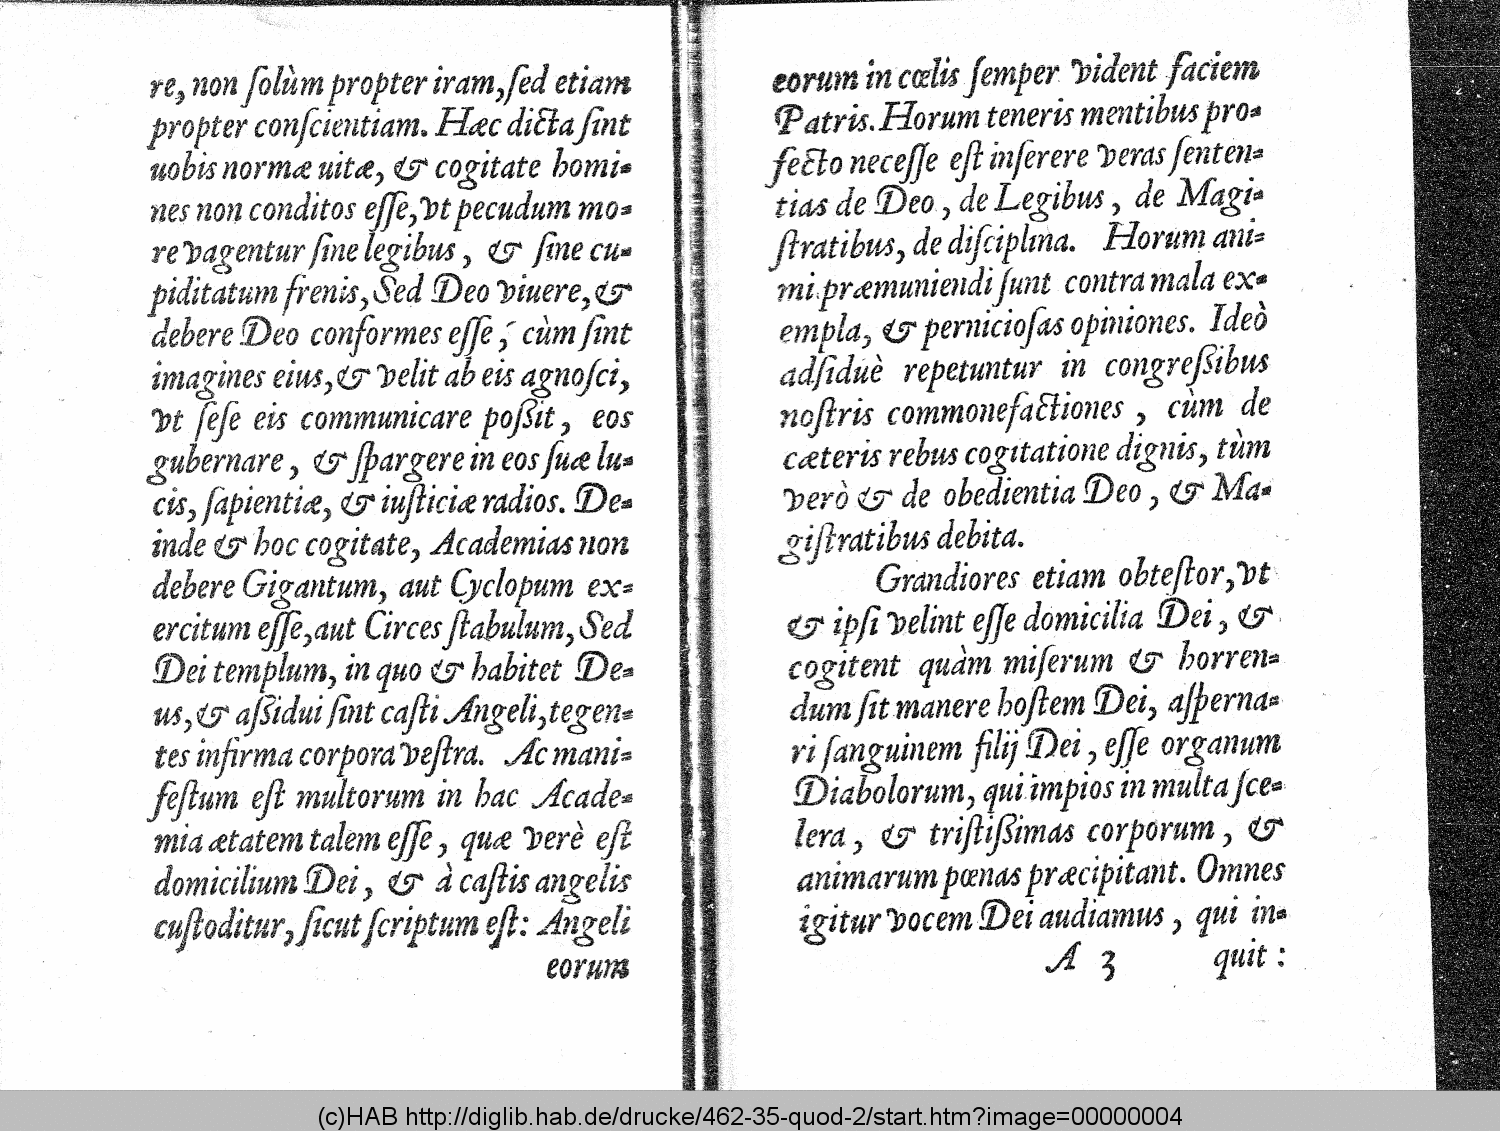 re, non ſolùm propter iram, ſed etiam
propter conſcientiam. Hæc dicta ſint
uobis normæ uitæ, & cogitate homi-
nes non conditos eſſe, vt pecudum mo-
re vagentur ſine legibus, & ſine cu-
piditatum frenis, Sed Deo viuere, &
debere Deo conformes eſſe, cùm ſint
imagines eius, & velit ab eis agnoſci,
vt ſeſe eis communicare poßit, eos
gubernare, & ſpargere in eos ſuæ lu-
cis, ſapientiæ, & iuſticiæ radios. De-
inde & hoc cogitate, Academias non
debere Gigantum, aut Cyclopum ex-
ercitum eſſe, aut Circes ſtabulum, Sed
Dei templum, in quo & habitet De-
us, & aßidui ſint caſti Angeli, tegen-
tes infirma corpora veſtra. Ac mani-
feſtum eſt multorum in hac Acade-
mia ætatem talem eſſe, quæ verè eſt
domicilium Dei, & à caſtis angelis
cuſtoditur, ſicut ſcriptum eſt: Angeli
eorum
eorum in cœlis ſemper vident faciem
Patris. Horum teneris mentibus pro-
fecto neceſſe eſt inſerere veras ſenten-
tias de Deo, de Legibus, de Magi-
ſtratibus, de diſciplina. Horum ani-
mi præmuniendi ſunt contra mala ex-
empla, & pernicioſas opiniones. Ideò
adſiduè repetuntur in congreßibus
noſtris commonefactiones, cùm de
cæteris rebus cogitatione dignis, tùm
verò & de obedientia Deo, & Ma-
giſtratibus debita.
Grandiores etiam obteſtor, vt
& ipſi velint eſſe domicilia Dei, &
cogitent quàm miſerum & horren-
dum ſit manere hoſtem Dei, aſperna-
ri ſanguinem filij Dei, eſſe organum
Diabolorum, qui impios in multa ſce-
lera, & triſtißimas corporum, &
animarum pœnas præcipitant. Omnes
igitur vocem Dei audiamus, qui in-
A 3 quit:
(c)HAB http://diglib.hab.de/drucke/462-35-quod-2/start.htm?image=00000004